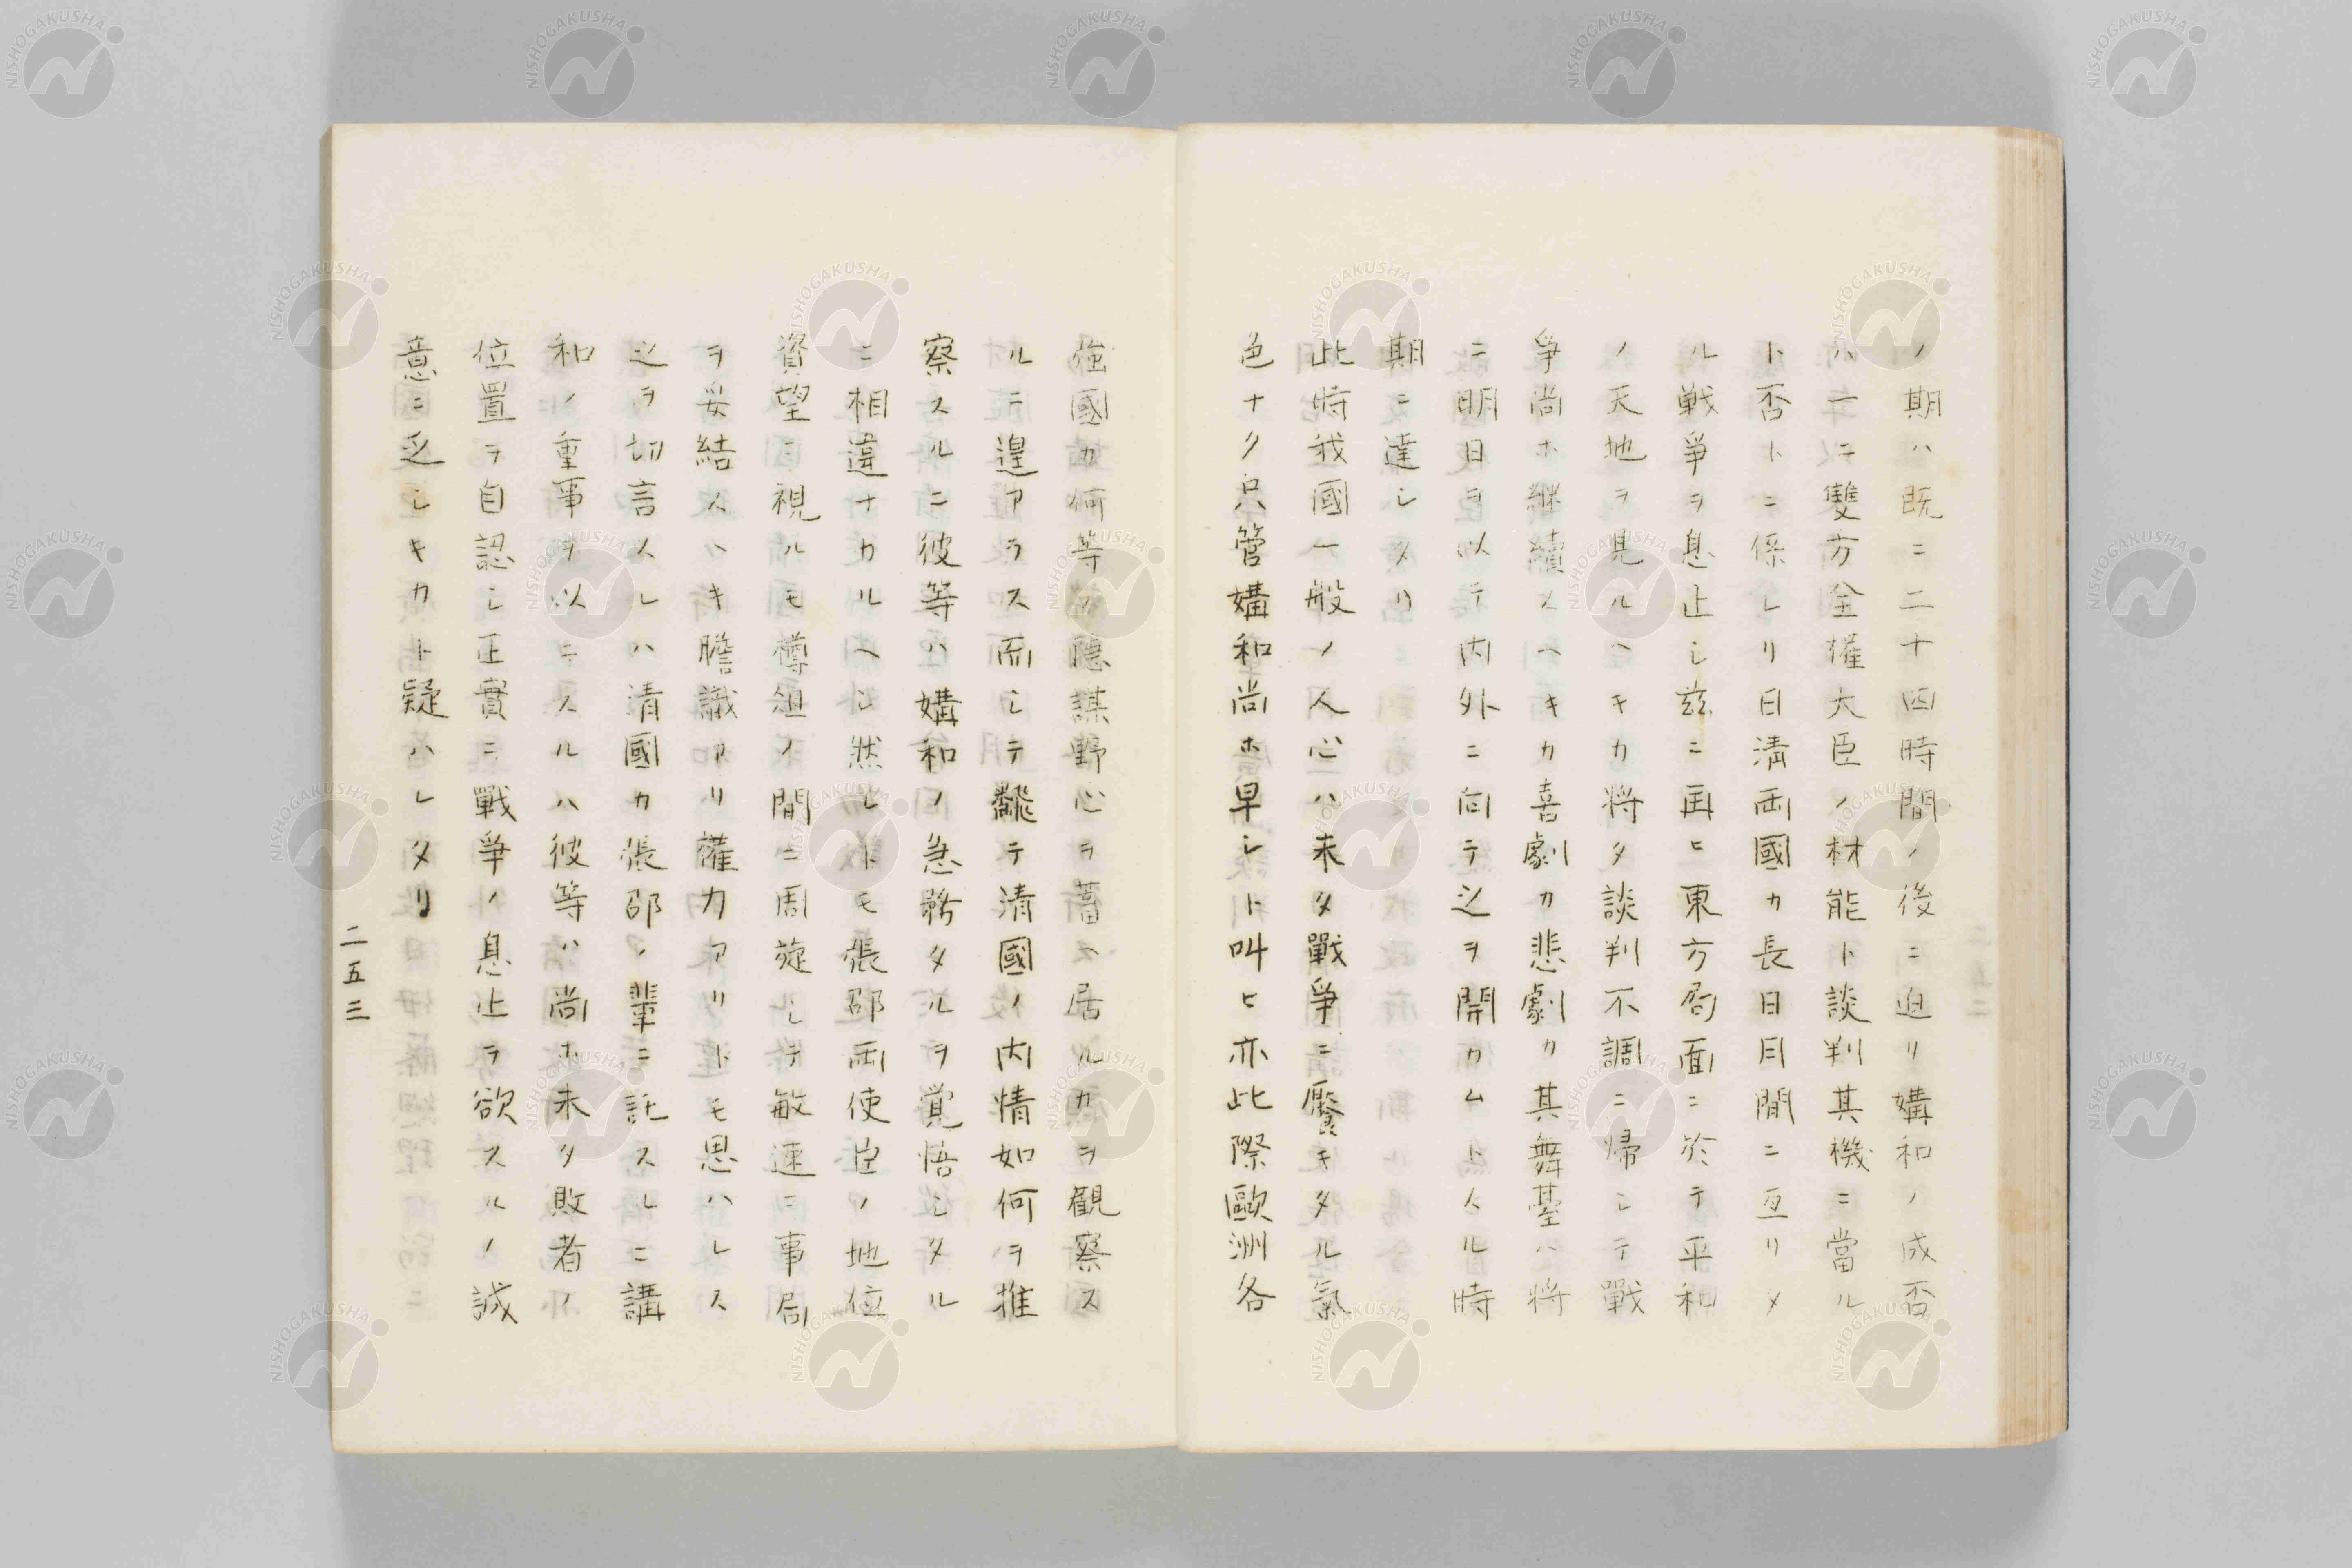 ノ期ハ既ニ二十四時間ノ後ニ迫リ媾和ノ成否
ハ一ニ雙方全權大臣ノ材能ト談判其機ニ當ル
ト否トニ係レリ日淸兩國カ長日月間ニ亙リタ
ル戦爭ヲ息止シ玆ニ再ヒ東方局面ニ於テ平和
ノ天地ヲ見ルヘキカ將タ談判不調ニ帰シテ戰
爭尚ホ継續スヘキカ喜劇カ悲劇カ其舞臺ハ將
ニ明日ヲ以テ内外ニ向テ之ヲ開カムトスル時
期ニ達シタリ
此時我國一般ノ人心ハ未タ戰爭ニ饜キタル氣
色ナク只管媾和尚ホ早シト叫ヒ亦此際歐洲各
強國カ何等ノ隱謀野心ヲ蓄ヘ居ルカヲ観察ス
ルニ遑アラス而シテ飜テ清國ノ内情如何ヲ推
察スルニ彼等ハ媾和ノ急務タルヲ覚悟シタル
ニ相違ナカルヘシ然レトモ張邵兩使臣ノ地位
資望ニ視ルモ樽俎ノ間ニ周旋シテ敏速ニ事局
ヲ妥結スヘキ膽識アリ權力アリトモ思ハレス
之ヲ切言スレハ清國カ張邵ノ輩ニ託スルニ講
和ノ重事ヲ以テスルハ彼等ハ尚ホ未タ敗者ノ
位置ヲ自認シ正實ニ戰爭ノ息止ヲ欲スルノ誠
意ニ乏シキカト疑ハレタリ
二五三
NISHOGAKUSHA